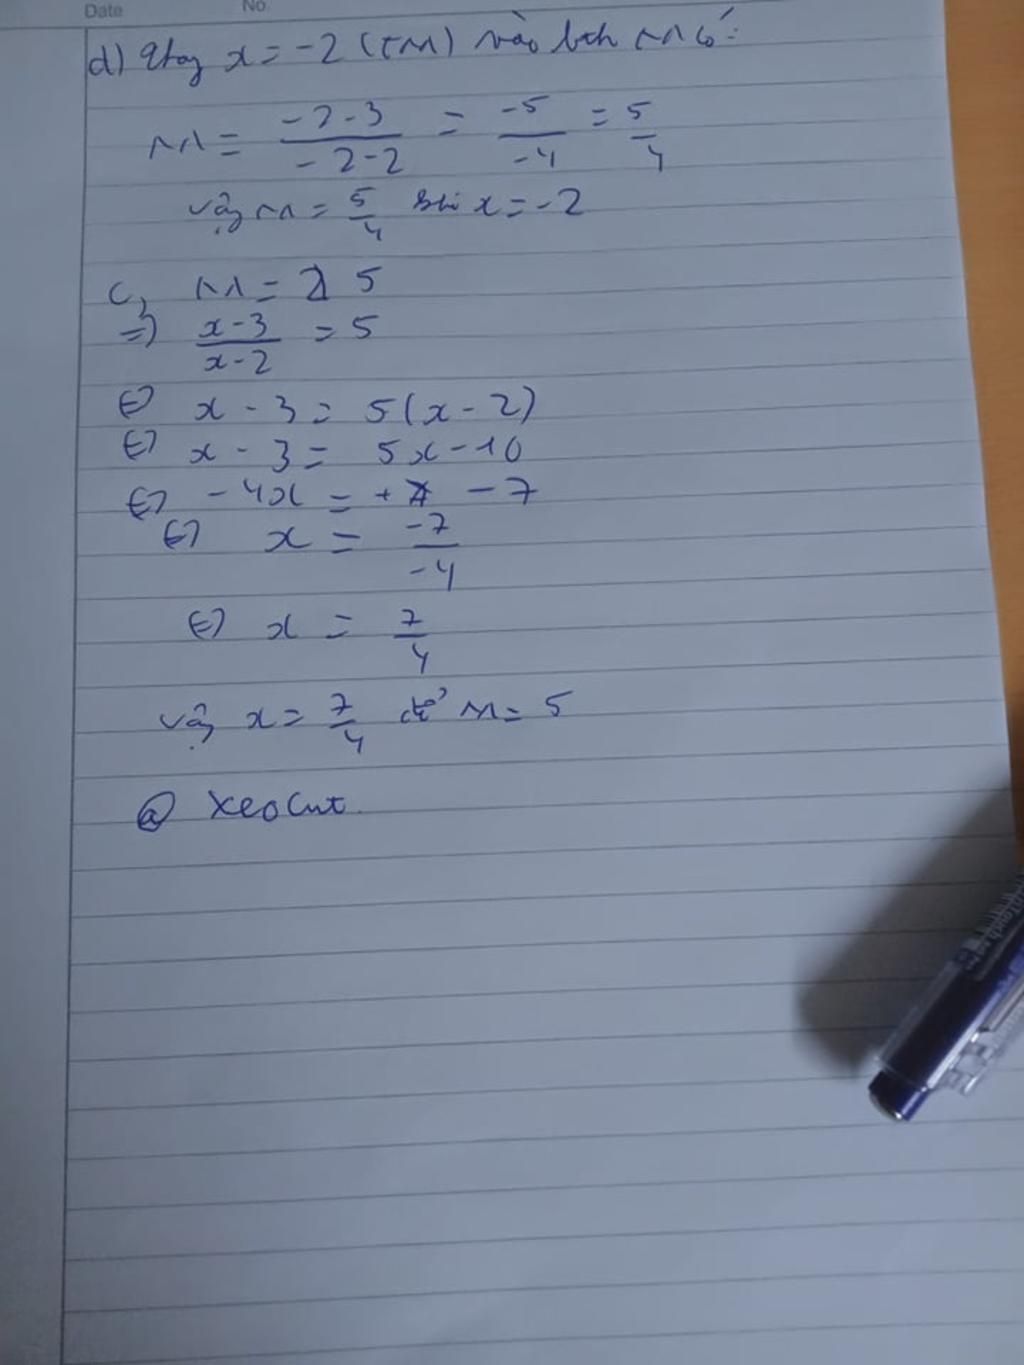 Date No.
d) Thay x = -2 (TM) vào bth M có:
M = \frac{-2-3}{-2-2} = \frac{-5}{-4} = \frac{5}{4}
vậy M = \frac{5}{4} khi x = -2
c, M = 5
=> \frac{x-3}{x-2} = 5
<=> x - 3 = 5(x - 2)
<=> x - 3 = 5x - 10
<=> -4x = -7
<=> x = \frac{-7}{-4}
<=> x = \frac{7}{4}
vậy x = \frac{7}{4} để M = 5
@ xeocut